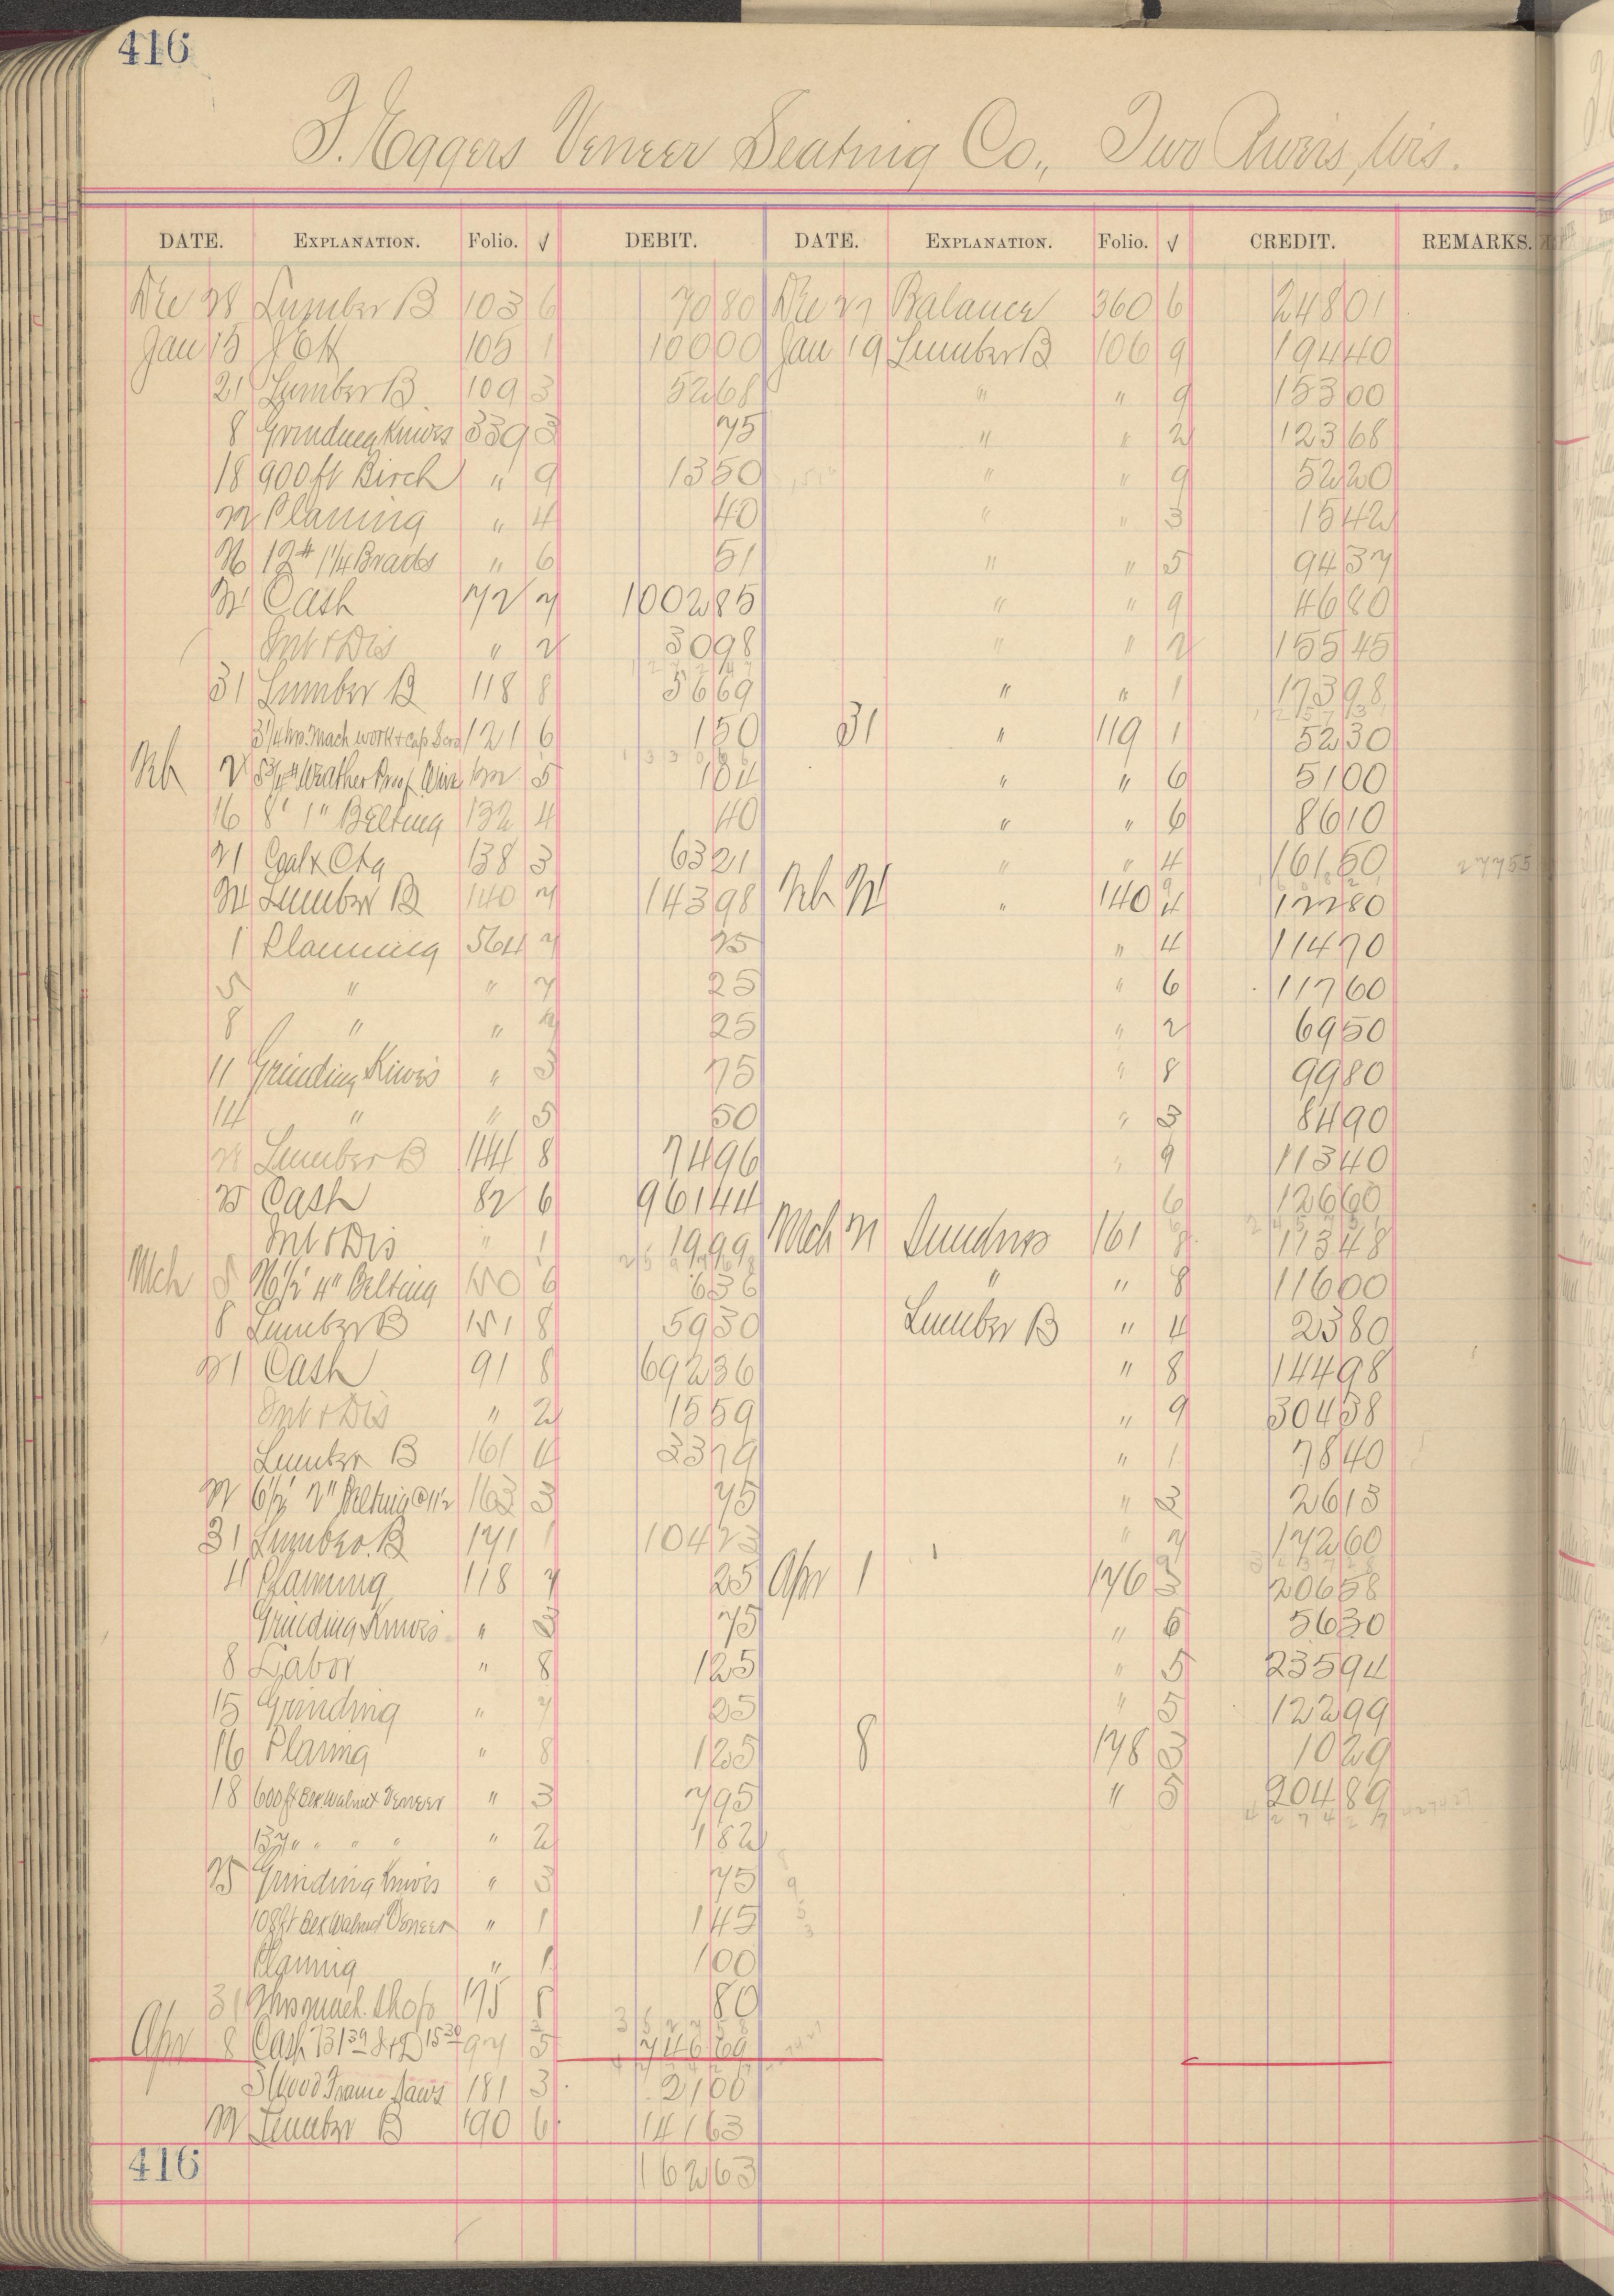 416
F. Eggers Veneer Seating Co., Two Rivers, Wis.
DATE. EXPLANATION. Folio. √ DEBIT. DATE. EXPLANATION. Folio. √ CREDIT. REMARKS.
Dec 28 Lumber B 103 6 70 80 Dec 27 Balance 360 6 248 01
Jan 15 105 1 100 00 Jan 19 Lumber B 106 9 194 40
21 Lumber B 109 3 52 68 " " 9 153 00
8 Grinding Knives 339 3 75 " " 2 123 68
18 900 ft Birch " 9 13 50 " " 9 52 20
22 Planing " 4 40 " " 3 15 42
26 12# 1 1/4 Brads " 6 51 " " 5 94 37
Cash 72 7 1002 85 " " 9 46 80
Int & Dis " 2 30 98 " " 2 155 45
31 Lumber B 118 8 56 69 " " 1 173 98
3 1/4 hrs. Mach work & Cap Screw 121 6 1 50 31 " 119 1 52 30
Feb 2 5 3/4# Weather Proof Wire 122 5 1 04 " " 6 51 00
16 8' 1" Belting 132 4 40 " " 6 86 10
21 Coal & Chg 138 3 63 21 " " 4 161 50 277 55
24 Lumber B 140 7 143 98 Feb 24 " 140 4 122 80
1 Planing 564 7 25 " 4 114 70
5 " " 7 25 " 6 117 60
8 " " 7 25 " 2 69 50
11 Grinding Knives " 3 75 " 8 99 80
14 " " 5 50 " 3 84 90
28 Lumber B 144 8 74 96 " 9 113 40
25 Cash 82 6 961 44 6 126 60
Int & Dis " 1 19 99 Mch 21 Sundries 161 8 113 48
Mch 5 26 1/2' 4" Belting 150 6 6 36 " " 8 116 00
8 Lumber B 151 8 59 30 Lumber B " 4 23 80
21 Cash 91 8 692 36 " 8 144 98
Int & Dis " 2 15 59 " 9 304 38
Lumber B 161 4 33 79 " 1 78 40
22 6 1/2' 2" Belting @ 11 1/2 163 3 75 " 3 26 13
31 Lumber B 171 1 104 23 " 7 172 60
4 Planing 118 7 25 Apr 1 176 3 206 58
Grinding Knives " 3 75 " 6 56 30
8 Labor " 8 1 25 " 5 235 94
15 Grinding " 7 25 " 5 122 99
16 Planing " 8 1 25 8 178 3 10 29
18 600 ft Blk Walnut Veneer " 3 7 95 " 5 204 89
137 " " " " " 2 1 82
25 Grinding Knives " 3 75
108 ft Blk Walnut Veneer " 1 1 45
Planing " 1 1 00
31 mach. shop 175 8 80
Apr 8 Cash 731 39 I & D 15 30 97 5 746 69
3 Wood Frame Saws 181 3 21 00
22 Lumber B 190 6 141 63
416 162 63